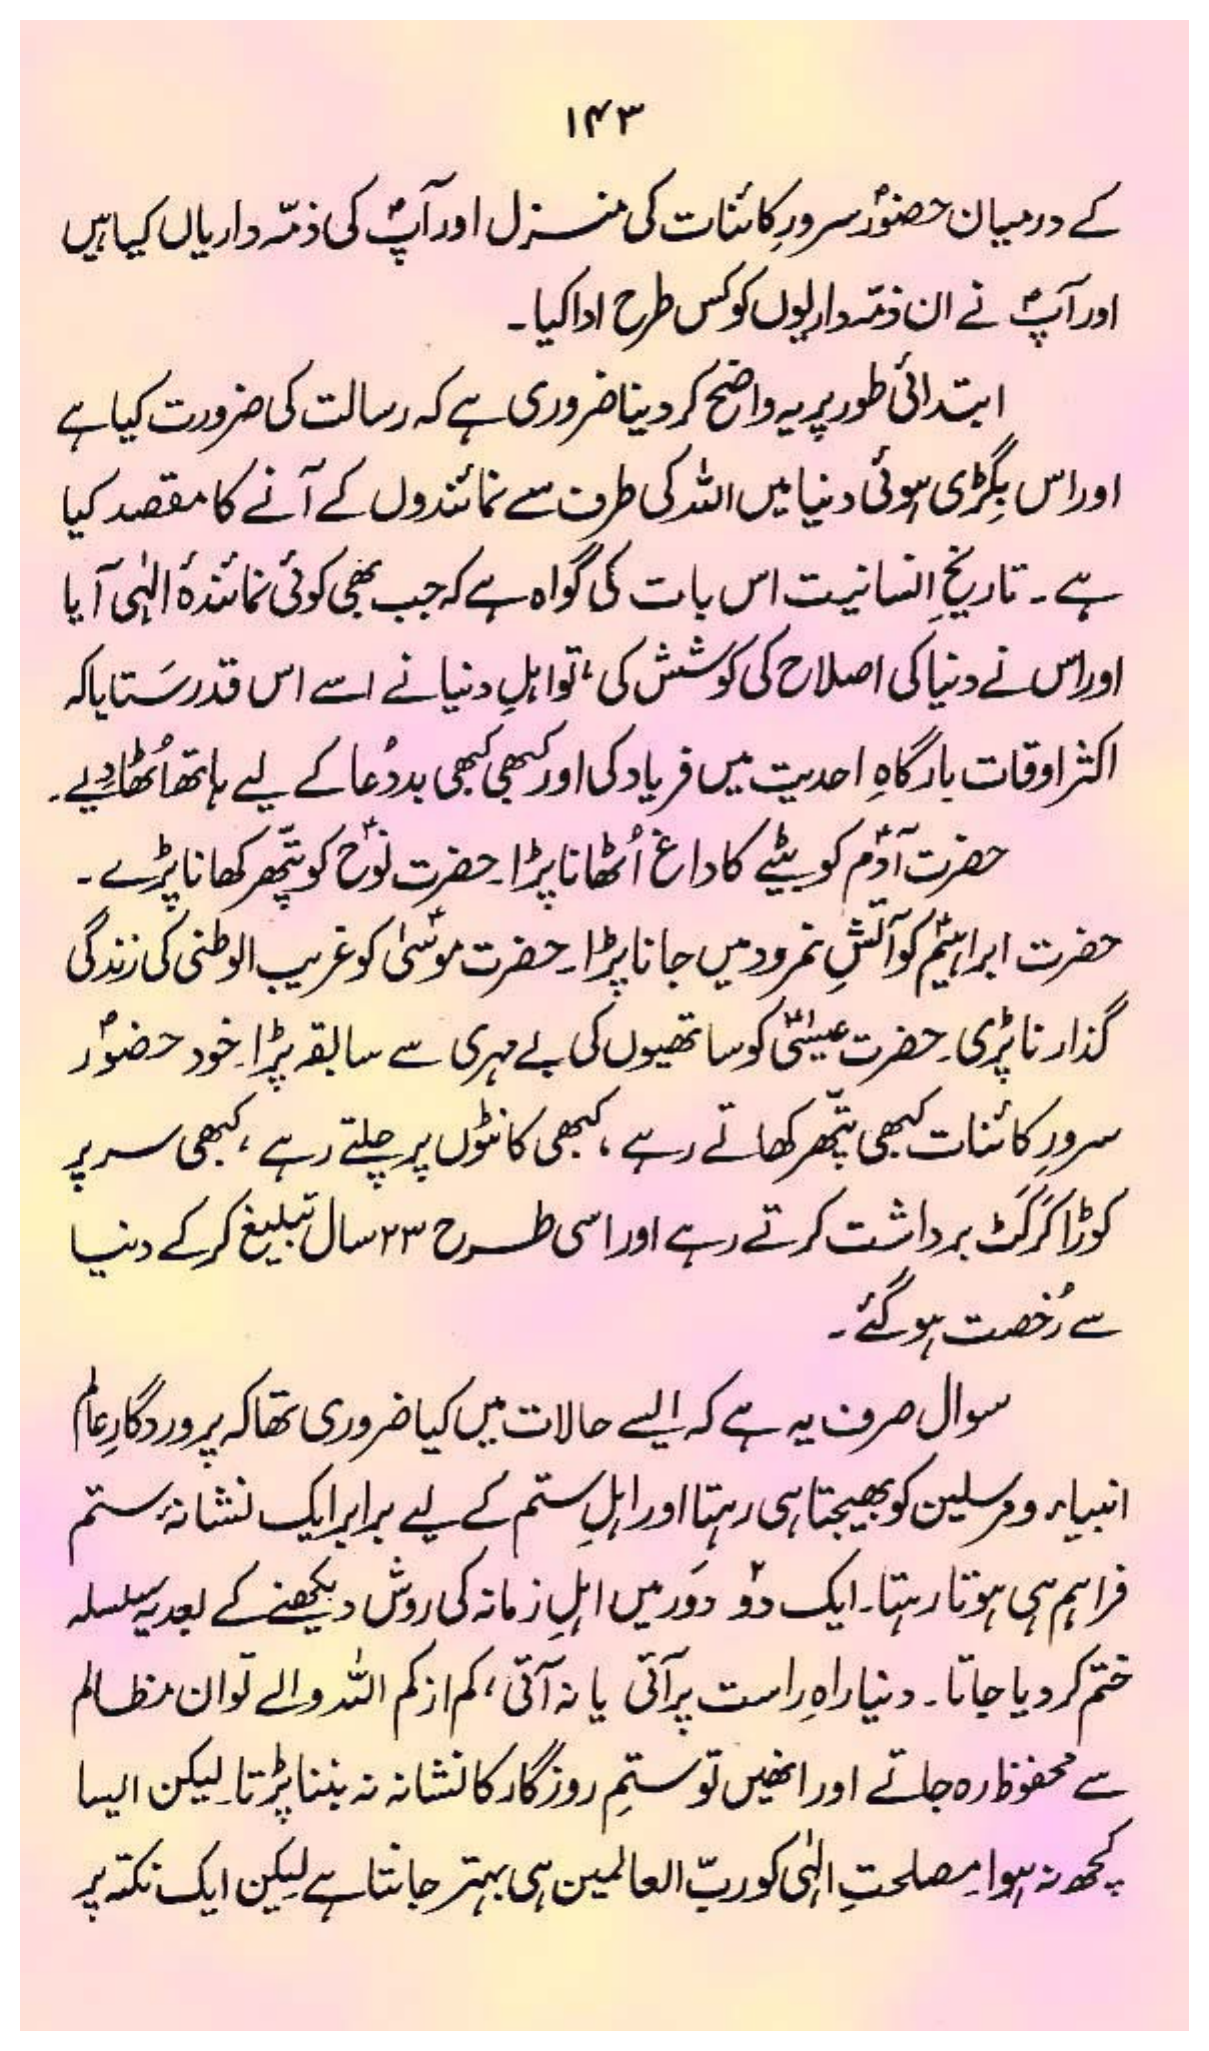 ۱۴۳
کے درمیان حضورؐ سرورِ کائنات کی منزل اور آپؐ کی ذمّہ داریاں کیا ہیں
اور آپؐ نے ان ذمّہ داریوں کو کس طرح ادا کیا۔
ابتدائی طور پر یہ واضح کر دینا ضروری ہے کہ رسالت کی ضرورت کیا ہے
اور اس بِگڑی ہوئی دنیا میں اللہ کی طرف سے نمائندوں کے آنے کا مقصد کیا
ہے۔ تاریخِ انسانیت اس بات کی گواہ ہے کہ جب بھی کوئی نمائندۂ الٰہی آیا
اور اس نے دنیا کی اصلاح کی کوشش کی، تو اہلِ دنیا نے اسے اس قدر سَتایا کہ
اکثر اوقات بارگاہِ احدیت میں فریاد کی اور کبھی کبھی بددُعا کے لیے ہاتھ اُٹھا دِیے۔
حضرت آدمؑ کو بیٹے کا داغ اُٹھانا پڑا۔ حضرت نوحؑ کو پتّھر کھانا پڑے۔
حضرت ابراہیمؑ کو آتشِ نمرود میں جانا پڑا۔ حضرت موسیٰؑ کو غریب الوطنی کی زندگی
گذارنا پڑی۔ حضرت عیسیٰؑ کو ساتھیوں کی بے مہری سے سابقہ پڑا۔ خود حضورؐ
سرورِ کائنات کبھی پتّھر کھاتے رہے، کبھی کانٹوں پر چلتے رہے، کبھی سر پر
کوڑا کَرکَٹ برداشت کرتے رہے اور اسی طرح ۲۳ سال تبلیغ کر کے دنیا
سے رُخصت ہو گئے۔
سوال صرف یہ ہے کہ ایسے حالات میں کیا ضروری تھا کہ پروردگارِ عالم
انبیاء و مرسلین کو بھیجتا ہی رہتا اور اہلِ ستم کے لیے برابر ایک نشانۂ ستم
فراہم ہی ہوتا رہتا۔ ایک دو۲ دَور میں اہلِ زمانہ کی روش دیکھنے کے بعد یہ سلسلہ
ختم کر دیا جاتا۔ دنیا راہِ راست پر آتی یا نہ آتی، کم از کم اللہ والے تو ان مظالم
سے محفوظ رہ جاتے اور انھیں تو ستمِ روزگار کا نشانہ نہ بننا پڑتا۔ لیکن ایسا
کچھ نہ ہوا۔ مصلحتِ الٰہی کو ربّ العالمین ہی بہتر جانتا ہے لیکن ایک نکتہ پر